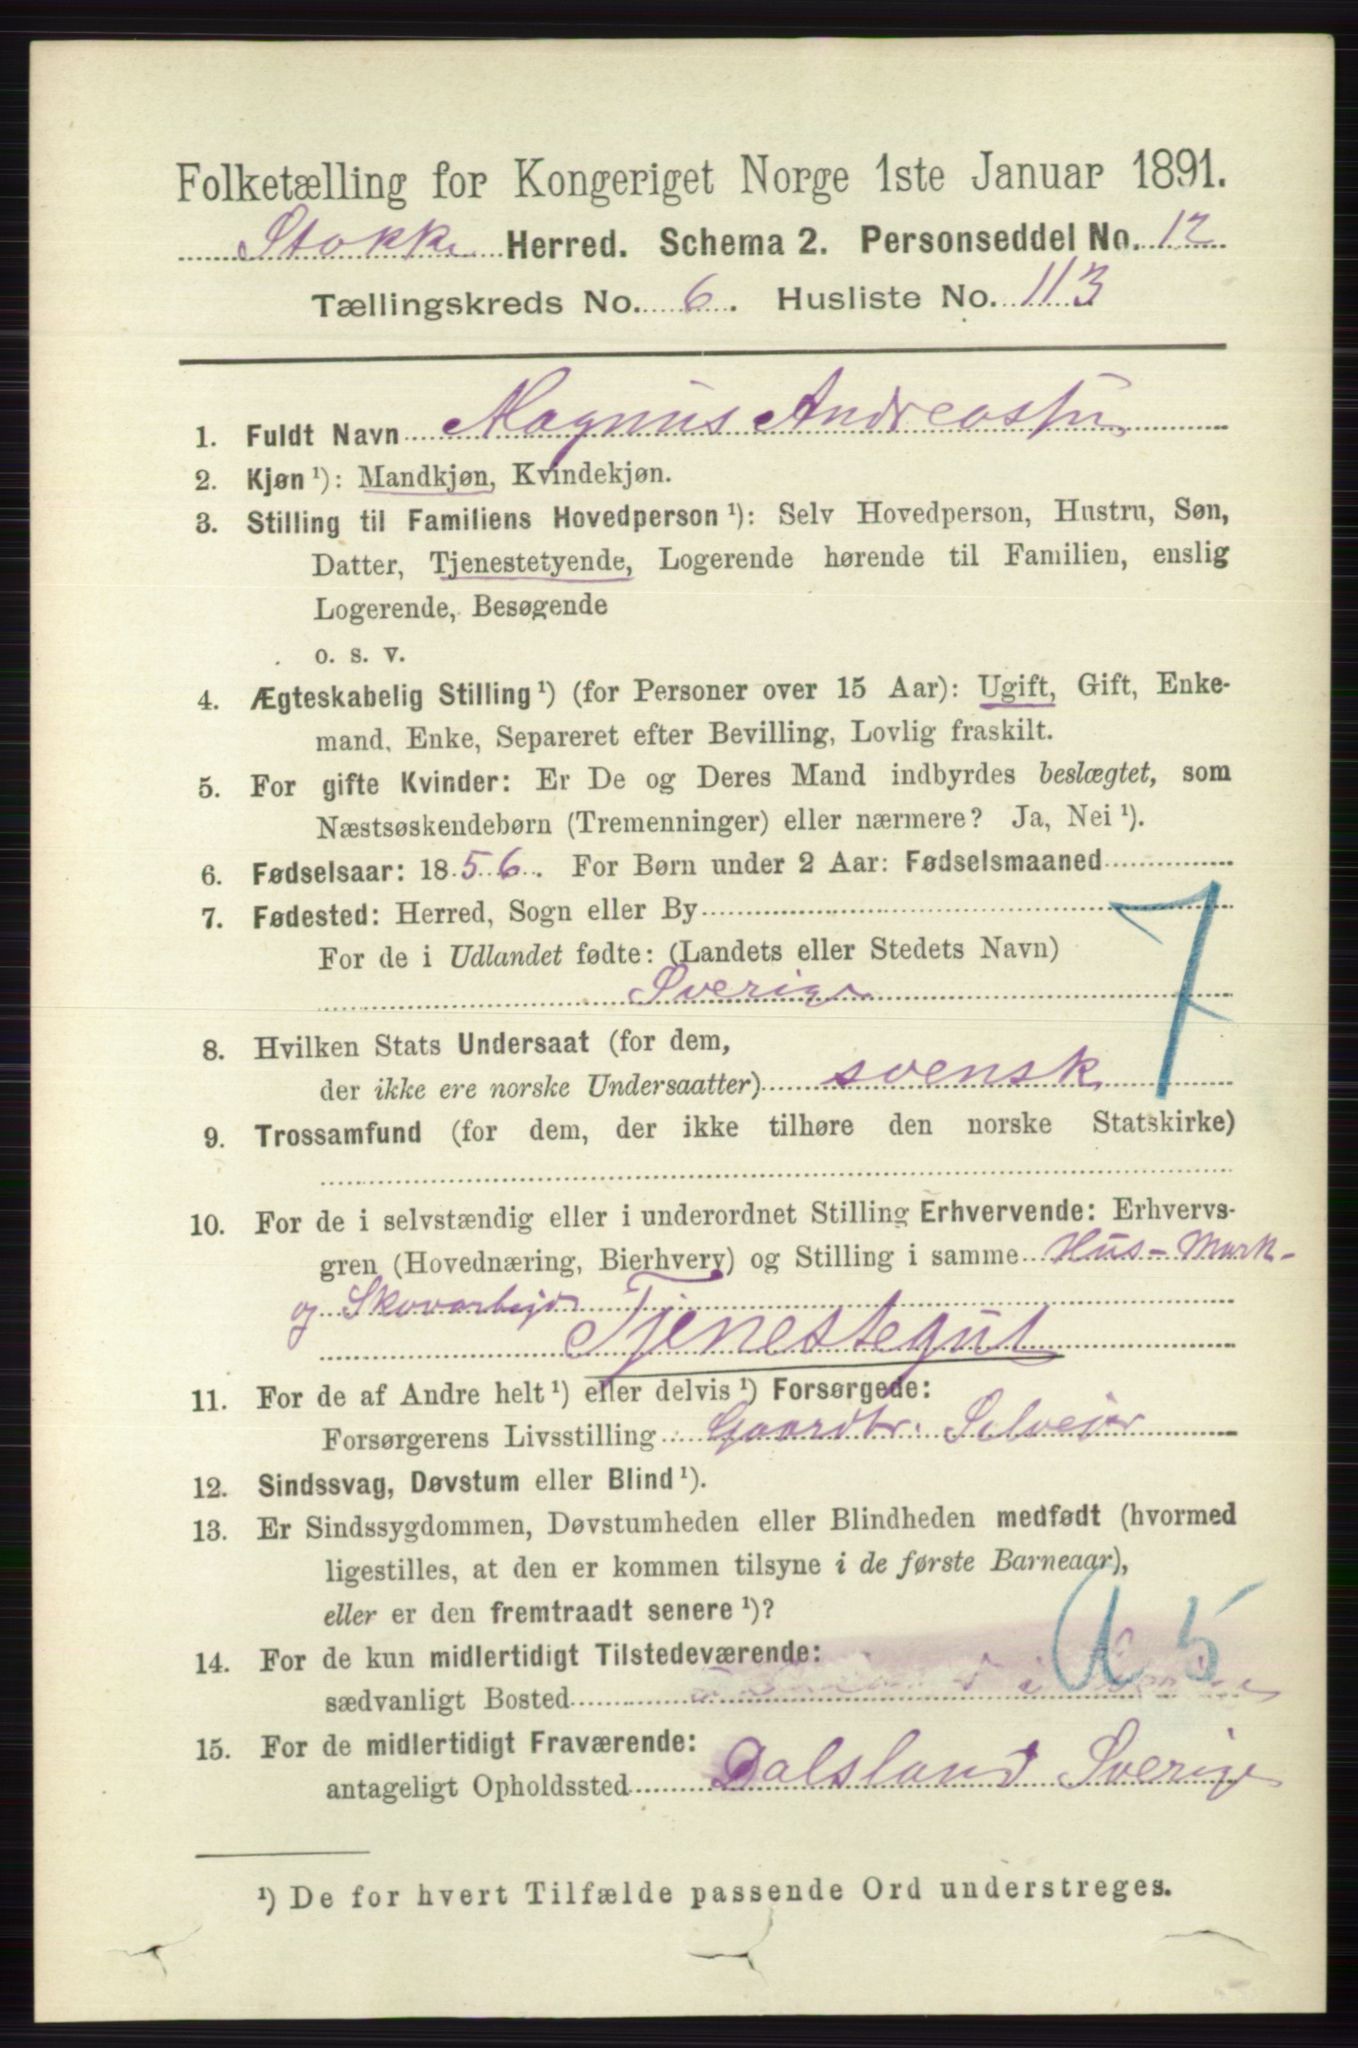 Folketælling for Kongeriget Norge 1ste Januar 1891.
Stokke Herred. Schema 2. Personseddel No. 12
Tællingskreds No. 6. Husliste No. 113
1. Fuldt Navn Magnus Andreassen
2. Kjøn ¹): Mandkjøn, Kvindekjøn.
3. Stilling til Familiens Hovedperson ¹): Selv Hovedperson, Hustru, Søn,
Datter, Tjenestetyende, Logerende hørende til Familien, enslig
Logerende, Besøgende
o. s. v.
4. Ægteskabelig Stilling ¹) (for Personer over 15 Aar): Ugift, Gift, Enke-
mand, Enke, Separeret efter Bevilling, Lovlig fraskilt.
5. For gifte Kvinder: Er De og Deres Mand indbyrdes beslægtet, som
Næstsøskendebørn (Tremenninger) eller nærmere? Ja, Nei ¹).
6. Fødselsaar: 1856. For Børn under 2 Aar: Fødselsmaaned
7. Fødested: Herred, Sogn eller By
For de i Udlandet fødte: (Landets eller Stedets Navn)
Sverige
7
8. Hvilken Stats Undersaat (for dem,
der ikke ere norske Undersaatter) svensk
9. Trossamfund (for dem, der ikke tilhøre den norske Statskirke)
10. For de i selvstændig eller i underordnet Stilling Erhvervende: Erhvervs-
gren (Hovednæring, Bierhverv) og Stilling i samme Hus- Mark-
og Skovarbejde
Tjenestegut
11. For de af Andre helt ¹) eller delvis ¹) Forsørgede:
Forsørgerens Livsstilling Gaardbr. Selveier
12. Sindssvag, Døvstum eller Blind ¹).
13. Er Sindssygdommen, Døvstumheden eller Blindheden medfødt (hvormed
ligestilles, at den er kommen tilsyne i de første Barneaar),
eller er den fremtraadt senere ¹)?
14. For de kun midlertidigt Tilstedeværende:
sædvanligt Bosted
15. For de midlertidigt Fraværende:
antageligt Opholdssted Dalsland Sverige
¹) De for hvert Tilfælde passende Ord understreges.